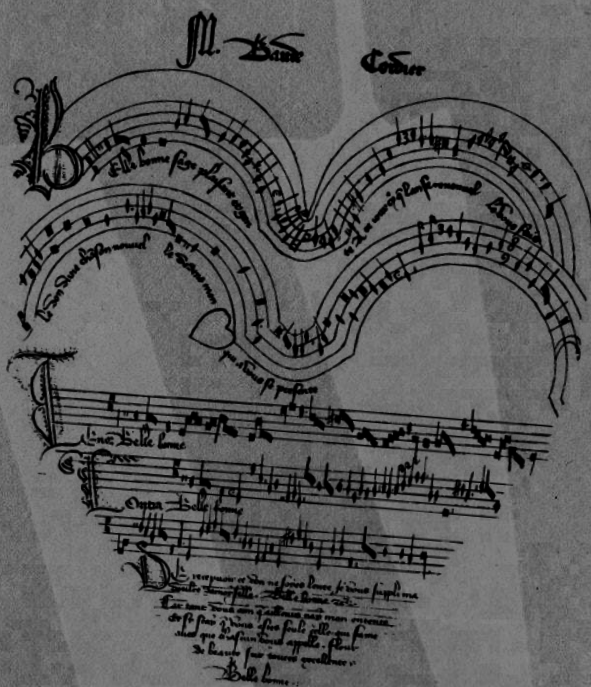 M. Baude Cordier
Belle bonne sage plaisant et gente
A ce jour cy que l'an se renouvel
Vous fais
le don d'une chanson nouvel
le Dedens mon
qui a vous se presente
Tenor Belle bonne
Contra Belle bonne
De recevoir ce don ne soies lente, Je vous suppli ma
doulce damoyselle. Belle bonne etc.
Car tant vous aim qu'aillours nay mon entente
Et sy scay que vous estes seule celle qui fame
aves que chascun vous appelle. flour
de beaute sur toutes excellente.
Belle bonne.